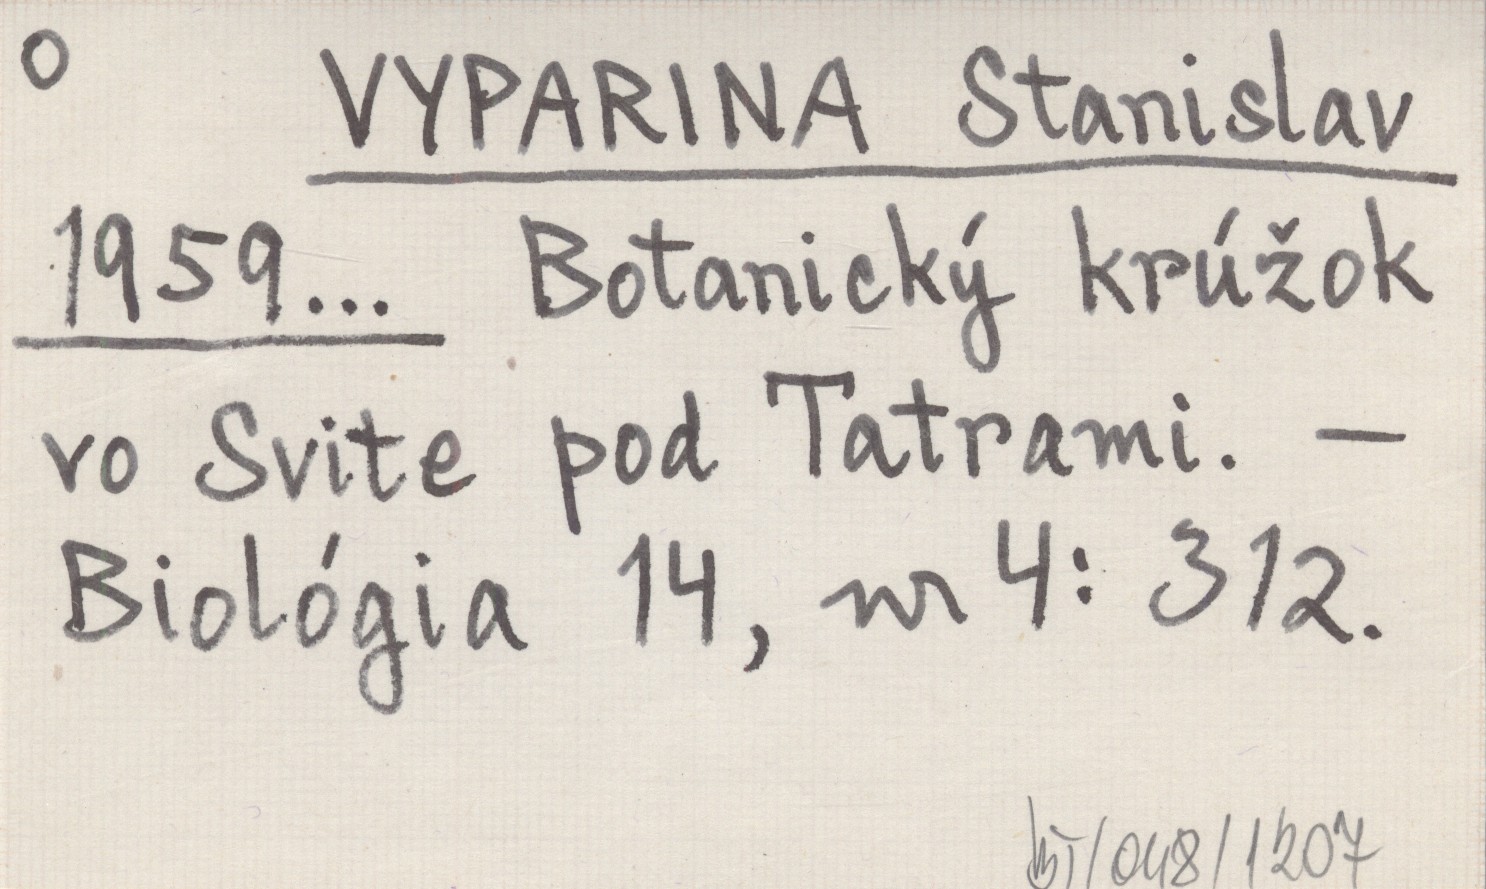 O VYPARINA Stanislav
1959... Botanický krúžok
vo Svite pod Tatrami. —
Biológia 14, nr 4: 312.
/048/1207